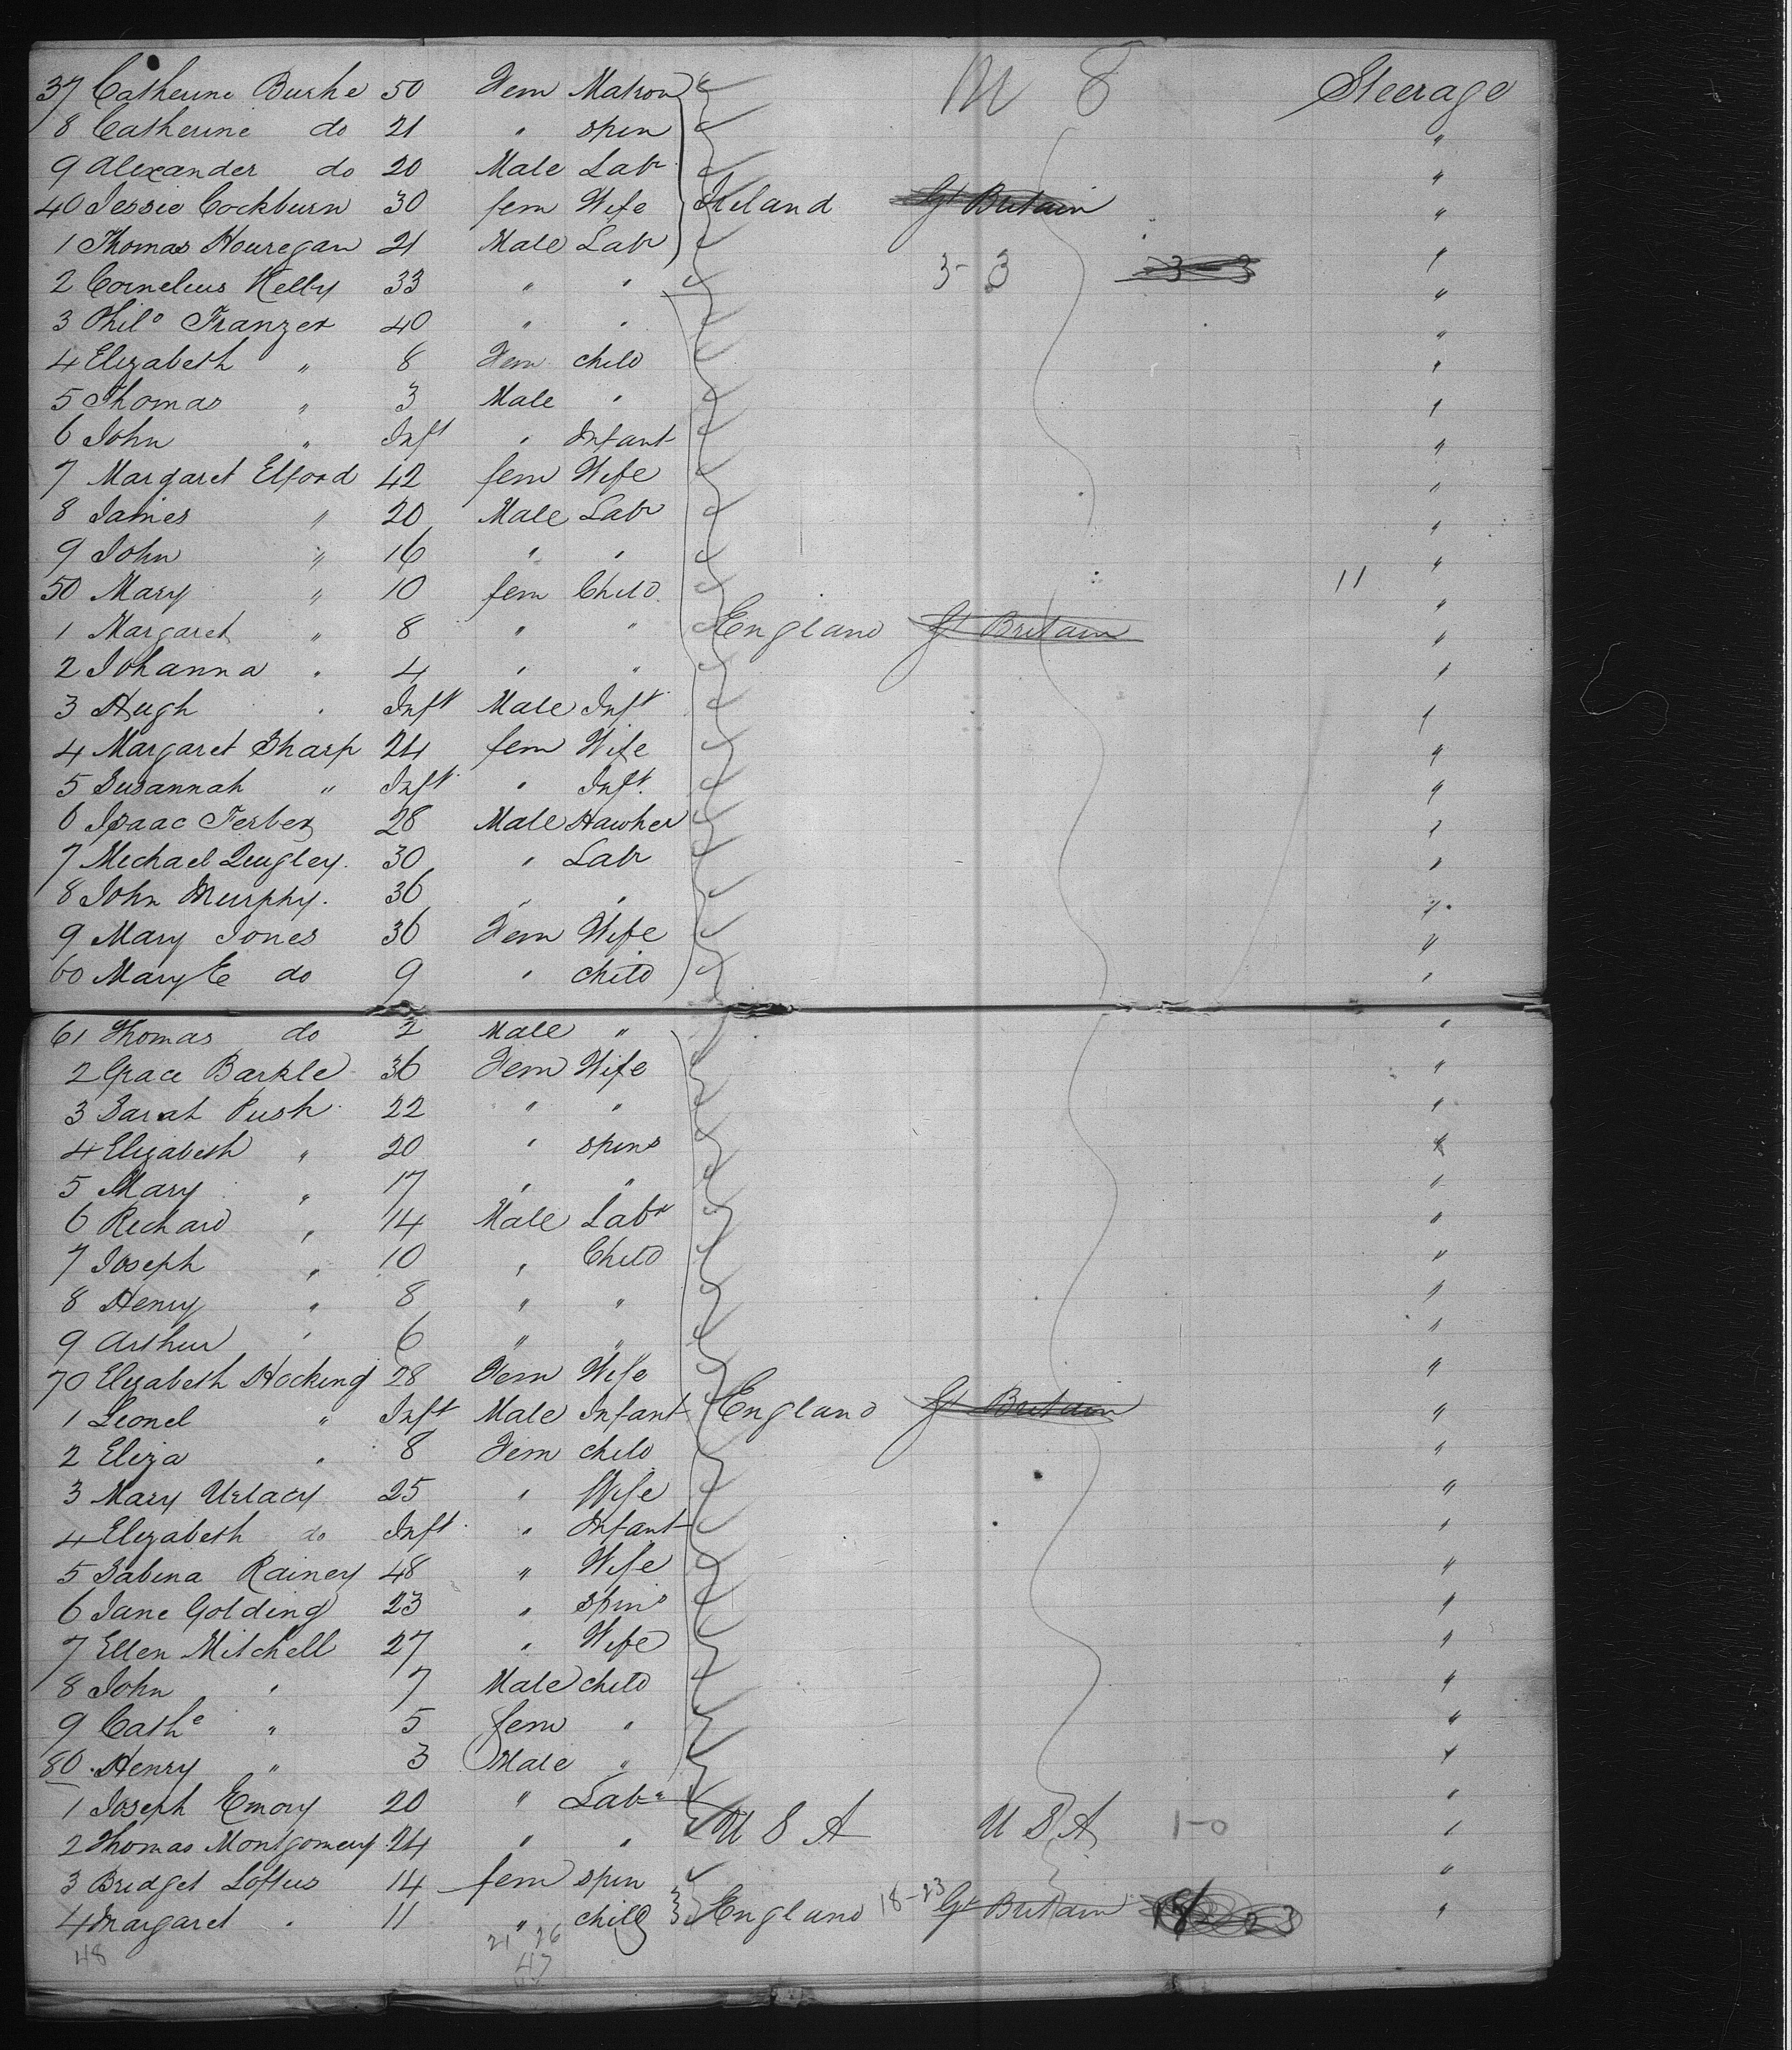 37 Catherine Burke 50 Fem Matron M F Steerage
8 Catherine do 21 " spin "
9 Alexander do 20 Male Labr "
40 Jessie Cockburn 30 fem Wife Ireland Gt Britain "
1 Thomas Houregan 21 Male Labr "
2 Cornelius Kelly 33 " " 3-3 3-3 "
3 Philo Franzer 40 " " "
4 Elizabeth " 8 Fem child "
5 Thomas " 3 Male " "
6 John " Inft " Infant "
7 Margaret Elford 42 fem Wife "
8 James " 20 Male Labr "
9 John " 16 " " "
50 Mary " 10 fem Child 11 "
1 Margaret " 8 " " England Gt Britain "
2 Johanna " 4 " " "
3 Hugh " Inft Male Inft "
4 Margaret Sharp 24 fem Wife "
5 Susannah " Inft " Inft "
6 Isaac Ferber 28 Male Hawker "
7 Michael Quigley 30 " Labr "
8 John Murphy 36 " " "
9 Mary Jones 36 Fem Wife "
60 Mary E do 9 " child "
61 Thomas do 2 Male " "
2 Grace Barkle 36 Fem Wife "
3 Sarah Push 22 " " "
4 Elizabeth " 20 " spins "
5 Mary " 17 " " "
6 Richard " 14 Male Labr "
7 Joseph " 10 " Child "
8 Henry " 8 " " "
9 Arthur " 6 " " "
70 Elizabeth Hocking 28 Fem Wife "
1 Leonel " Inft Male Infant England Gt Britain "
2 Eliza " 8 Fem child "
3 Mary 25 " Wife "
4 Elizabeth do Inft " Infant "
5 Sabina Rainey 48 " Wife "
6 Jane Golding 23 " spins "
7 Ellen Mitchell 27 " Wife "
8 John " 7 Male child "
9 Cathe " 5 fem " "
80 Henry " 3 Male " "
1 Joseph Emory 20 " Labr "
2 Thomas Montgomery 24 " " U S A U S A 1-0 "
3 Bridget Loftus 14 fem spin "
4 Margaret " 11 " child England 18-23 Gt Britain "
48 21 26
47